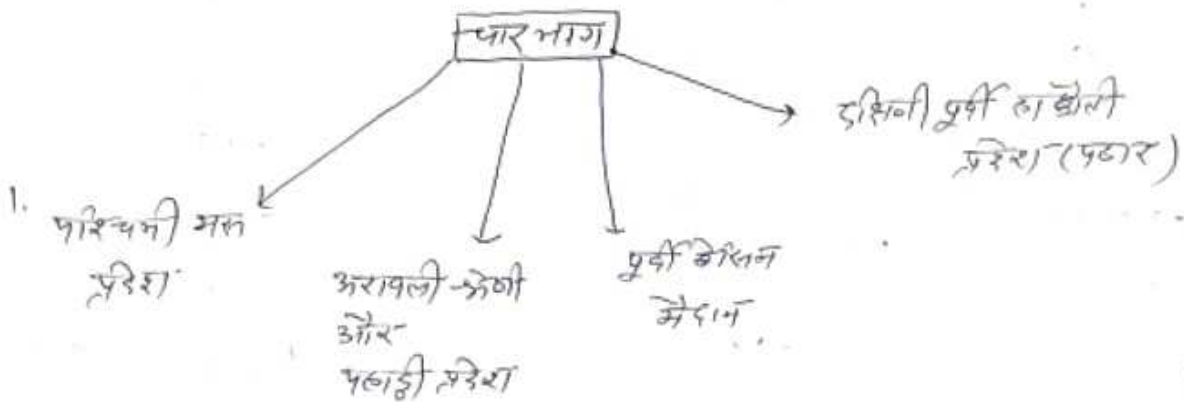 चार भाग
1. पश्चिमी मरू
प्रदेश
अरावली श्रेणी
और
पहाड़ी प्रदेश
पूर्वी बेसिन
मैदान
दक्षिणी पूर्वी हाड़ौती
प्रदेश (पठार)